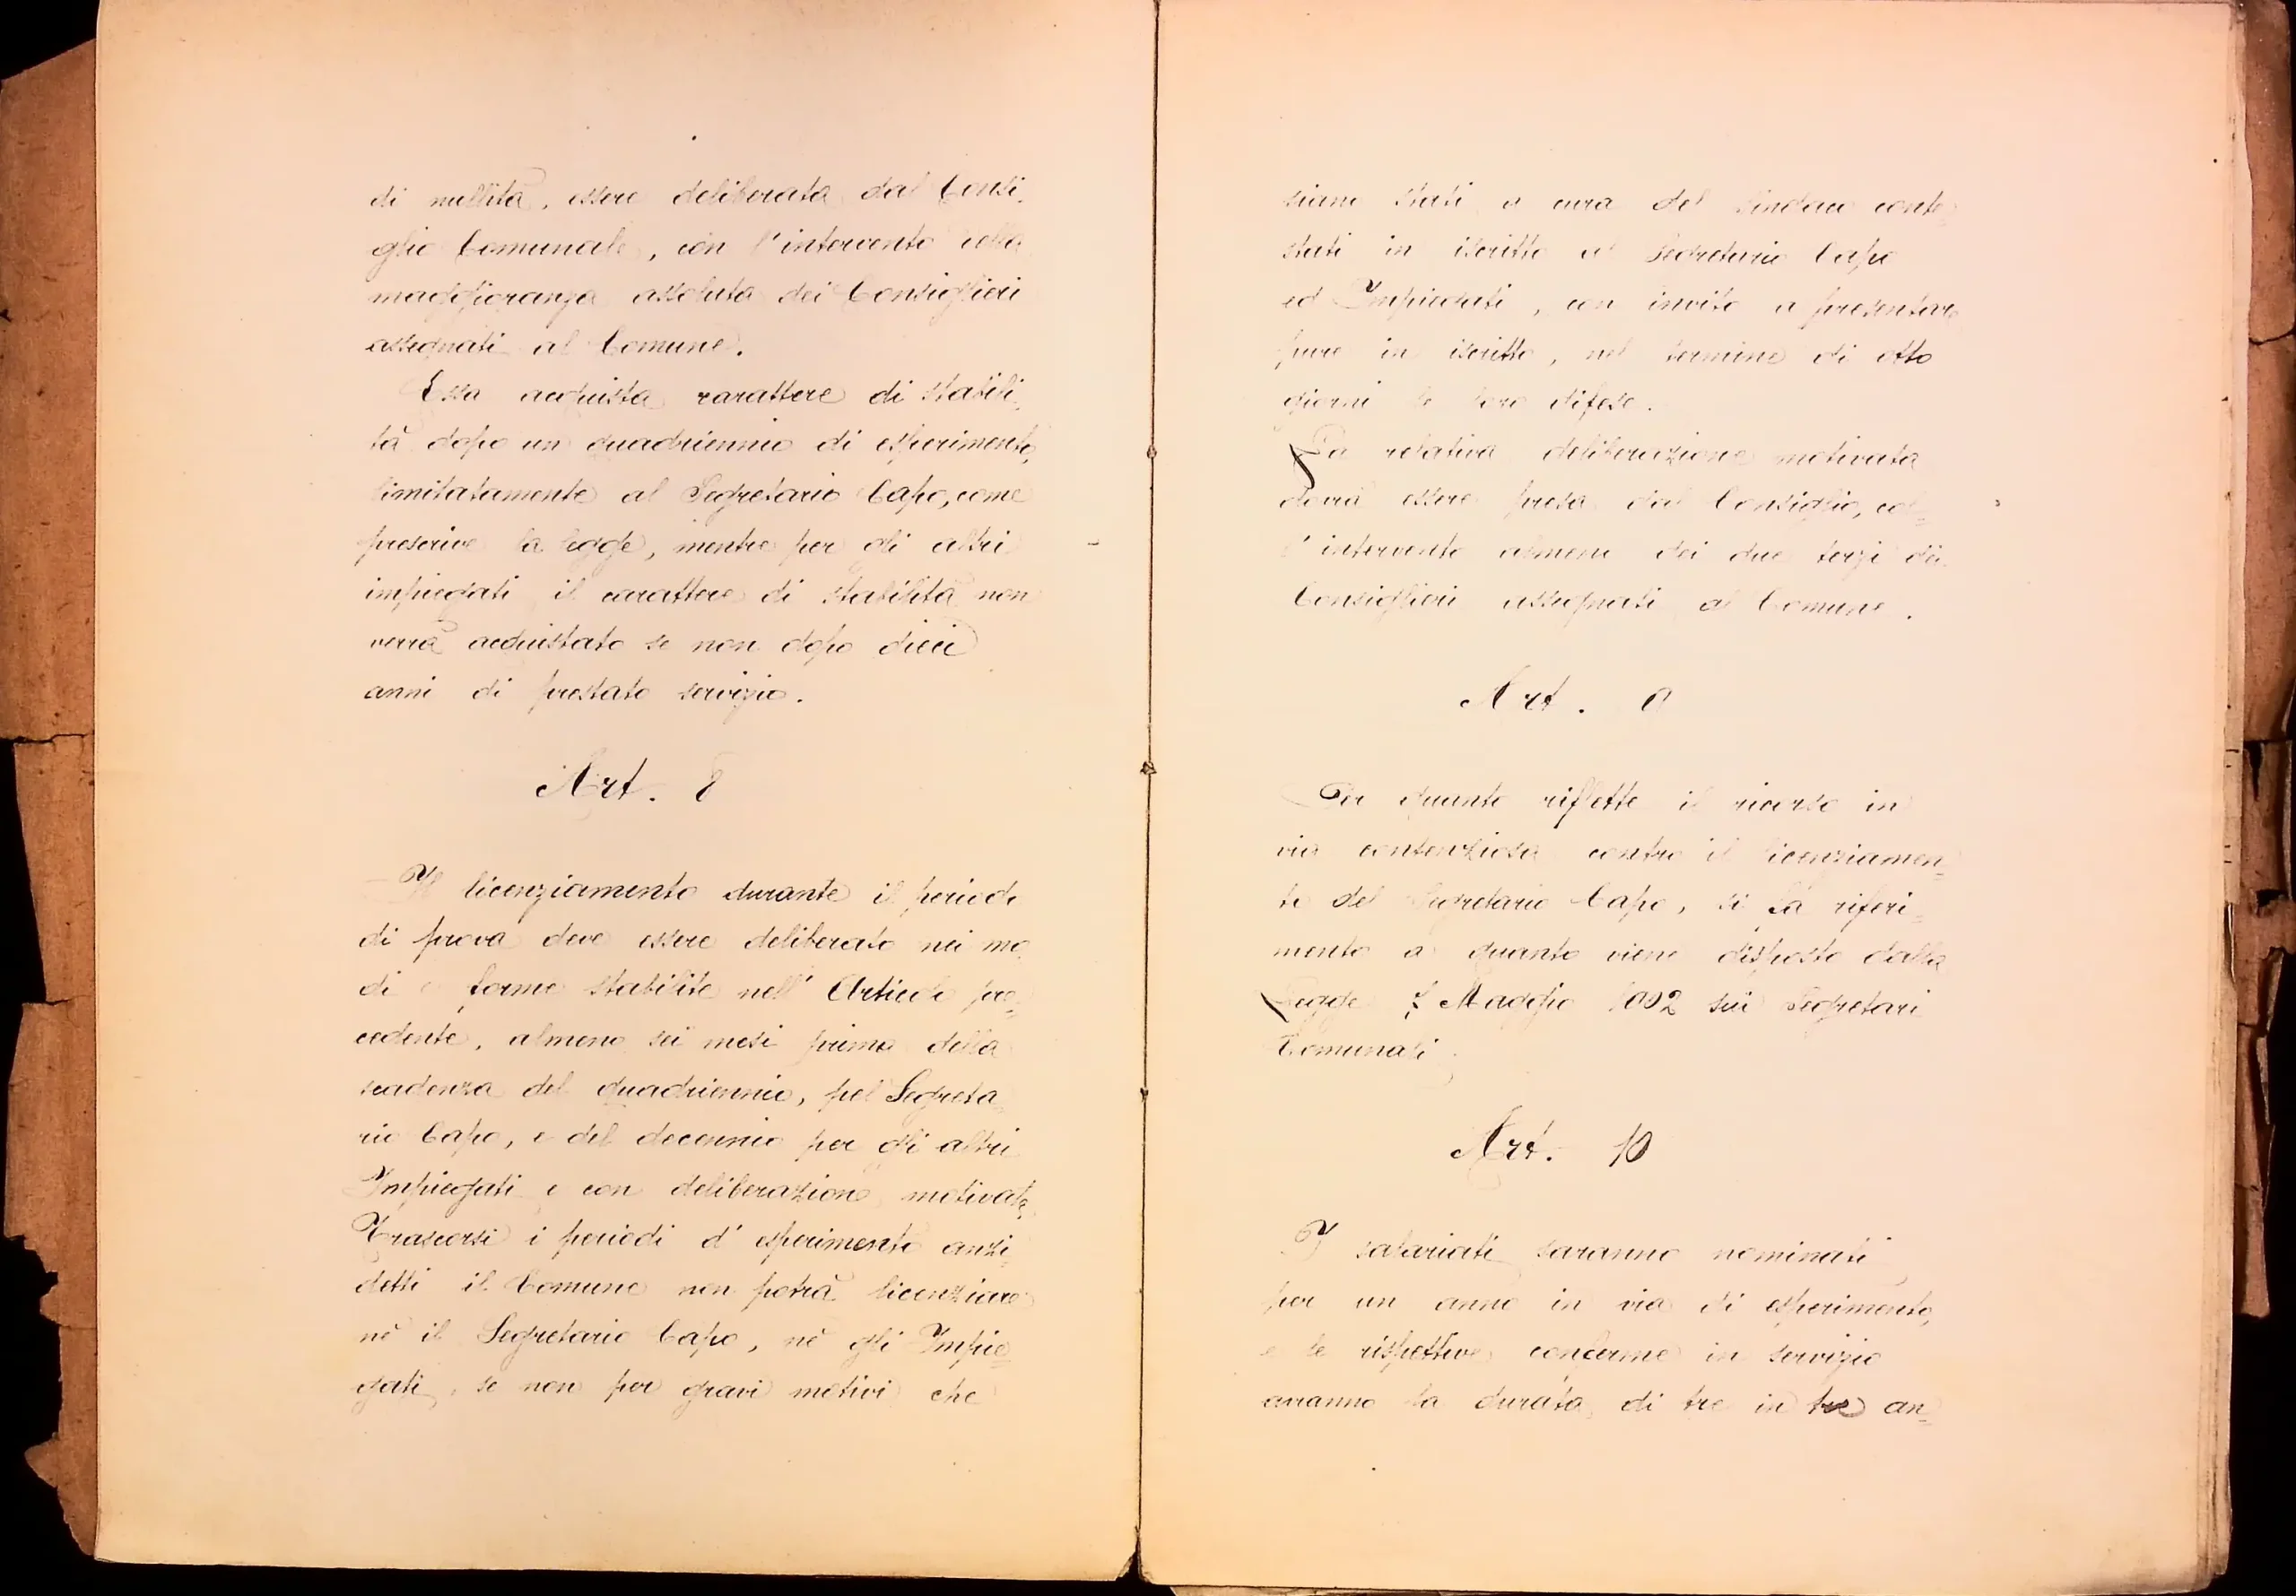 di nullità, essere deliberata dal Consi-
glio Comunale, con l'intervento della
maggioranza assoluta dei Consiglieri
assegnati al Comune.
Essa acquista carattere di stabili-
tà dopo un quadriennio di esperimento,
limitatamente al Segretario Capo, come
prescrive la legge, mentre per gli altri
impiegati il carattere di stabilità non
verrà acquistato se non dopo dieci
anni di prestato servizio.
Art. 8
Il licenziamento durante il periodo
di prova deve essere deliberato nei mo-
di e forme stabilite nell'Articolo pre=
cedente, almeno sei mesi prima della
scadenza del quadriennio, pel Segreta=
rio Capo, e del decennio per gli altri
Impiegati e con deliberazione motivata.
Trascorsi i periodi d'esperimento anzi=
detti il Comune non potrà licenziare
nè il Segretario Capo, nè gli Impie=
gati, se non per gravi motivi che
siano stati a cura del Sindaco conte=
stati in iscritto al Segretario Capo
ed Impiegati, con invito a presentare
pure in iscritto, nel termine di otto
giorni le loro difese.
La relativa deliberazione motivata
dovrà essere presa dal Consiglio, col=
l'intervento almeno dei due terzi dei
Consiglieri assegnati al Comune.
Art. 9
Per quanto riflette il ricorso in
via contenziosa contro il licenziamen=
to del Segretario Capo, si fa riferi=
mento a quanto viene disposto dalla
Legge 7 Maggio 1902 sui Segretari
Comunali
Art. 10
I salariati saranno nominati
per un anno in via di esperimento,
e le rispettive conferme in servizio
avranno la durata di tre in tre an=